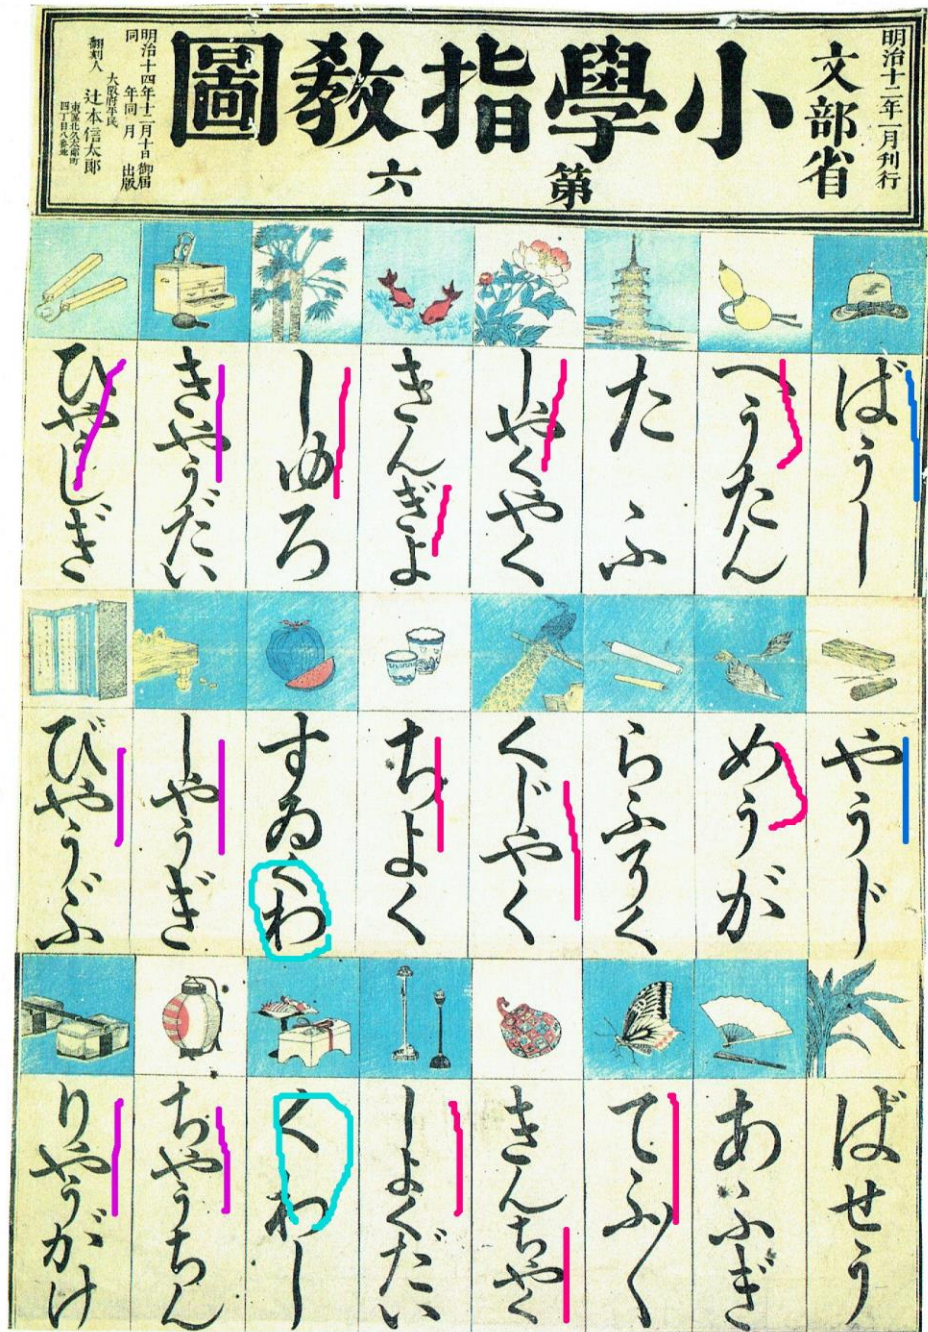 明治十二年一月刊行
文部省
小學指敎圖
第六
明治十四年十二月十日御届
同年同月出版
大阪府平民
翻刻人 辻本信太郎
東區北久太郎町
四丁目八番地
ばうし
へうたん
たふ
しやくやく
きんぎよ
しゆろ
きやうだい
ひやうしぎ
やうじ
めうが
らふそく
くじやく
ちよく
すゐくわ
しやうぎ
びやうぶ
ばせう
あふぎ
てふ〱
きんちやく
しよくだい
くわし
ちやうちん
りやうがけ